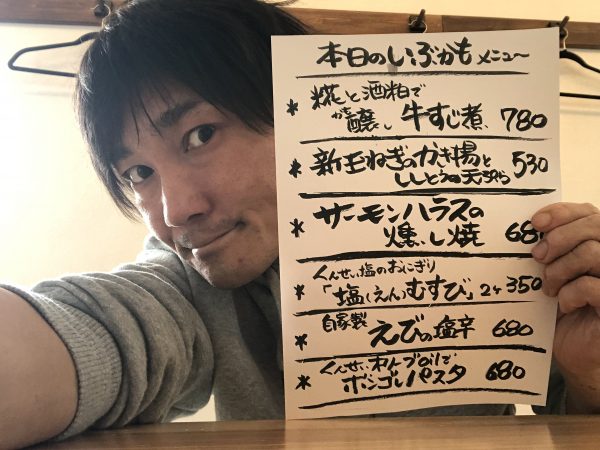 本日のいぶかもメニュー
* 糀と酒粕で
かも
醸し 牛すじ煮 780
* 新玉ねぎのかき揚と
ししとうの天ぷら 530
* サーモンハラスの
燻し焼 680
くんせい塩のおにぎり
* 「塩(えん)むすび」2ケ 350
自家製
* えびの塩辛 680
くんせいオリーブoilで
* ボンゴレパスタ 680